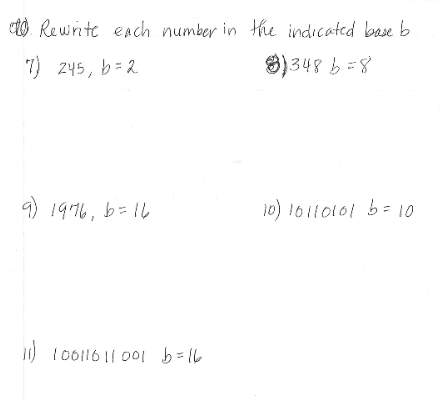 Rewrite each number in the indicated base b
7) 245, b=2
8) 348 b=8
9) 1976, b=16
10) 10110101 b=10
11) 10011011001 b=16